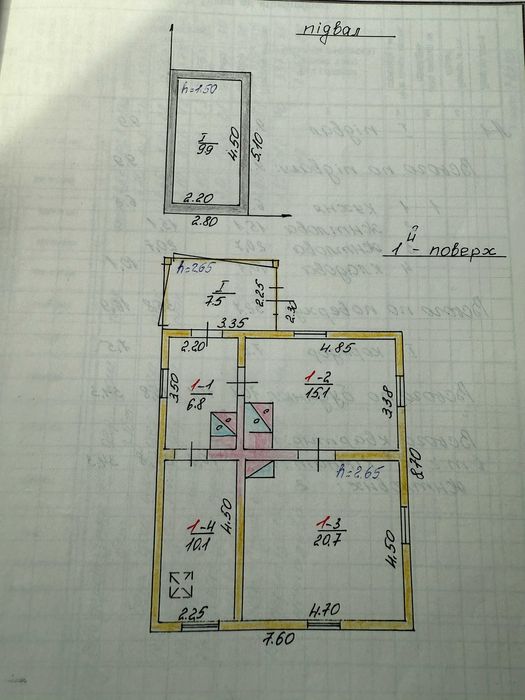 підвал
h=1.50
I
9.9
4.50
5.10
2.20
2.80
1й - поверх
h=2.65
I
7.5
2.25
2.30
3.35
2.20
4.85
3.50
1-1
6.8
1-2
15.1
3.38
8.70
h=2.65
4.50
1-4
10.1
1-3
20.7
4.50
2.25
4.70
7.60